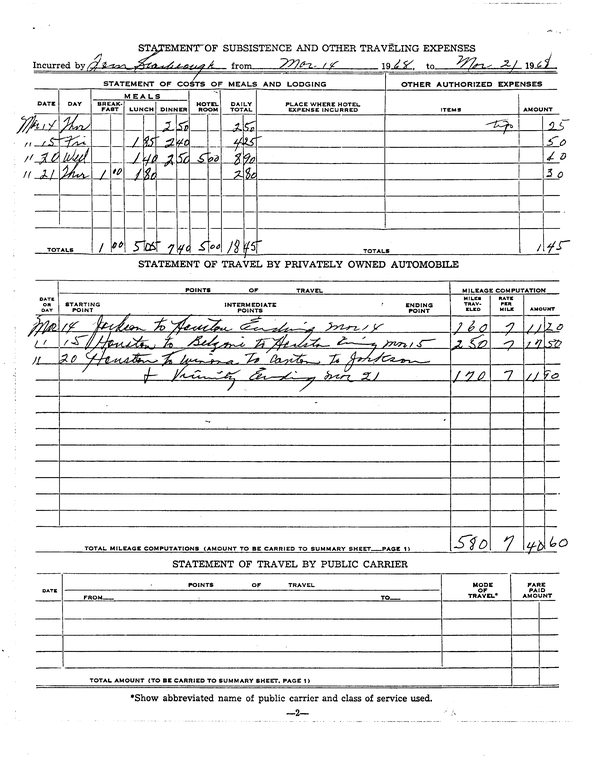 STATEMENT OF SUBSISTENCE AND OTHER TRAVELING EXPENSES
Incurred by Tom Scarbrough from Mar. 14 1968, to Mar. 21 1968
STATEMENT OF COSTS OF MEALS AND LODGING OTHER AUTHORIZED EXPENSES
MEALS
DATE DAY BREAK-FAST LUNCH DINNER HOTEL ROOM DAILY TOTAL PLACE WHERE HOTEL EXPENSE INCURRED ITEMS AMOUNT
Mar 14 Thur 2 50 2 50 tips 25
" 15 Fri 1 85 2 40 4 25 50
" 20 Wed 1 40 2 50 5 00 8 90 40
" 21 Thur 1 00 1 80 2 80 30
TOTALS 1 00 5 05 7 40 5 00 18 45 TOTALS 1.45
STATEMENT OF TRAVEL BY PRIVATELY OWNED AUTOMOBILE
POINTS OF TRAVEL MILEAGE COMPUTATION
DATE OR DAY STARTING POINT INTERMEDIATE POINTS ENDING POINT MILES TRAV-ELED RATE PER MILE AMOUNT
Mar 14 Jackson to Houston Ending Mar 14 160 7 11 20
" 15 Houston to Belzoni to Houston Ending Mar 15 250 7 17 50
" 20 Houston to Winona to Canton to Jackson
+ Vicinity Ending Mar 21 170 7 11 90
TOTAL MILEAGE COMPUTATIONS (AMOUNT TO BE CARRIED TO SUMMARY SHEET__PAGE 1) 580 7 40 60
STATEMENT OF TRAVEL BY PUBLIC CARRIER
DATE POINTS OF TRAVEL MODE OF TRAVEL* FARE PAID AMOUNT
FROM__ TO__
TOTAL AMOUNT (TO BE CARRIED TO SUMMARY SHEET, PAGE 1)
*Show abbreviated name of public carrier and class of service used.
—2—